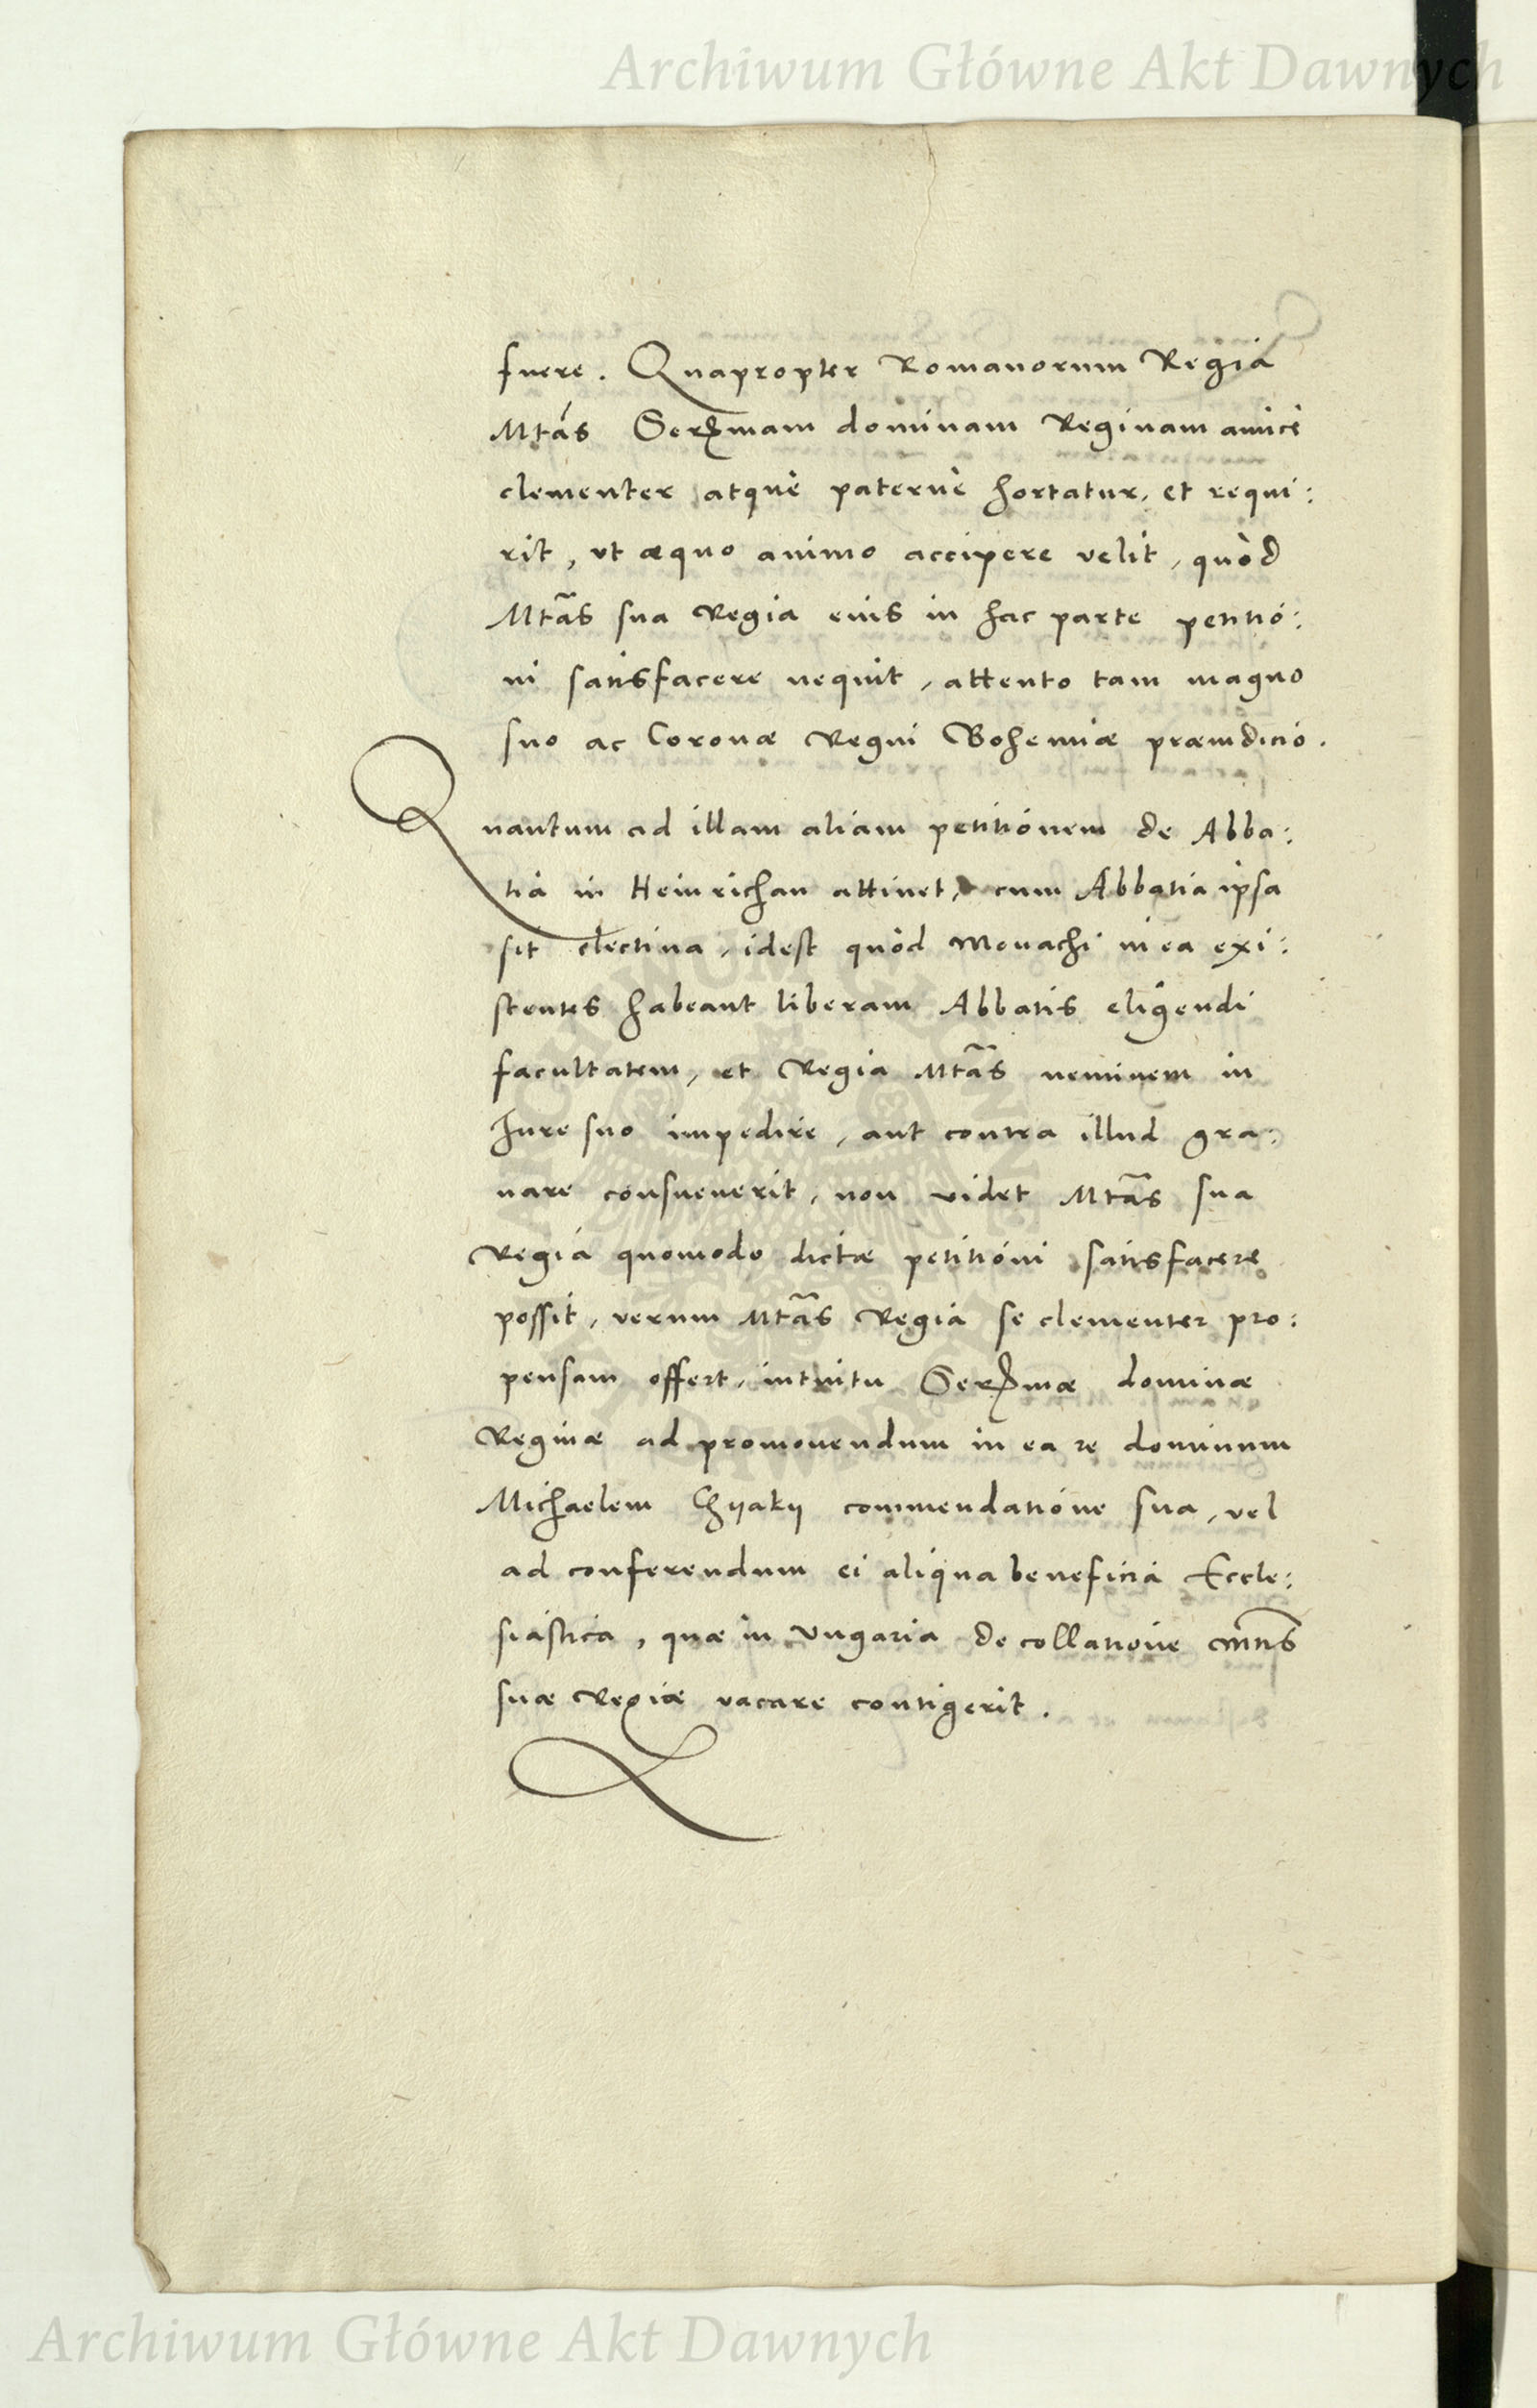 Archiwum Główne Akt Dawnych
fuere. Quapropter Romanorum Regia
Mtas Serᵐmam dominam Reginam amicè
clementer atquè paternè hortatur, et requi:
rit, vt æquo animo accipere velit, quòd
Mtas sua Regia eius in hac parte petitio:
ni satisfacere nequit, attento tam magno
suo ac Coronæ Regni Bohemiæ præiudicio.
Quantum ad illam aliam petitionem de Abba:
tia in Heinrichau attinet, cum Abbatia ipsa
sit electiua, idest quòd Monachi in ea exi:
stentes habeant liberam Abbatis eligendi
facultatem, et Regia Mtas neminem in
Iure suo impedire, aut contra illud gra:
uare consueuerit, non videt Mtas sua
Regia quomodo dictæ petitioni satisfacere
possit, verum Mtas Regia se clementer pro:
pensam offert, intuitu Serᵐmæ dominæ
Reginæ ad promouendum in ea re dominum
Michaelem Chyaky commendatione sua, vel
ad conferendum ei aliqua beneficia Eccle:
siastica, quæ in Vngaria de collatione Mtis
suæ Regiæ vacare contigerit.
Archiwum Główne Akt Dawnych